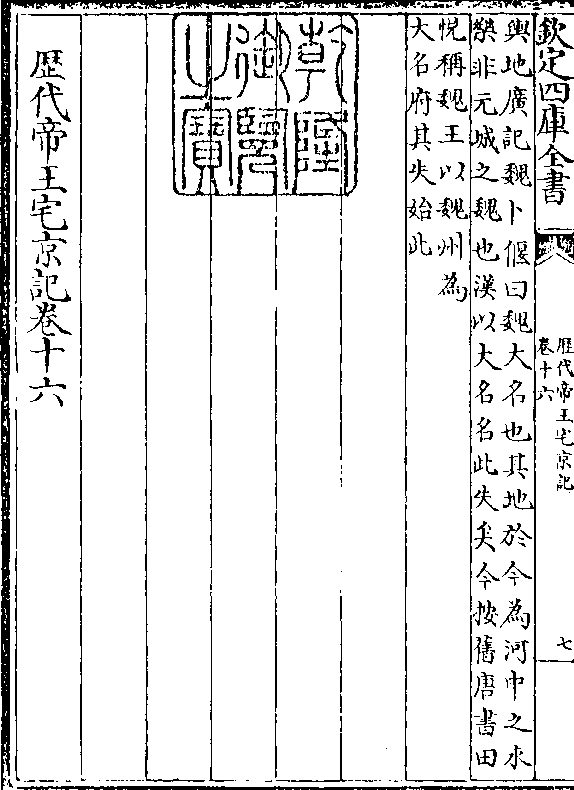 欽定四庫全書
歴代帝王宅京記
卷十六
七
輿地廣記魏卜偃曰魏大名也其地於今為河中之水
樂非元城之魏也漢以大名名此失矣今按舊唐書田
悦稱魏王以魏州為
大名府其失始此
乾隆御覽之寶
歴代帝王宅京記卷十六